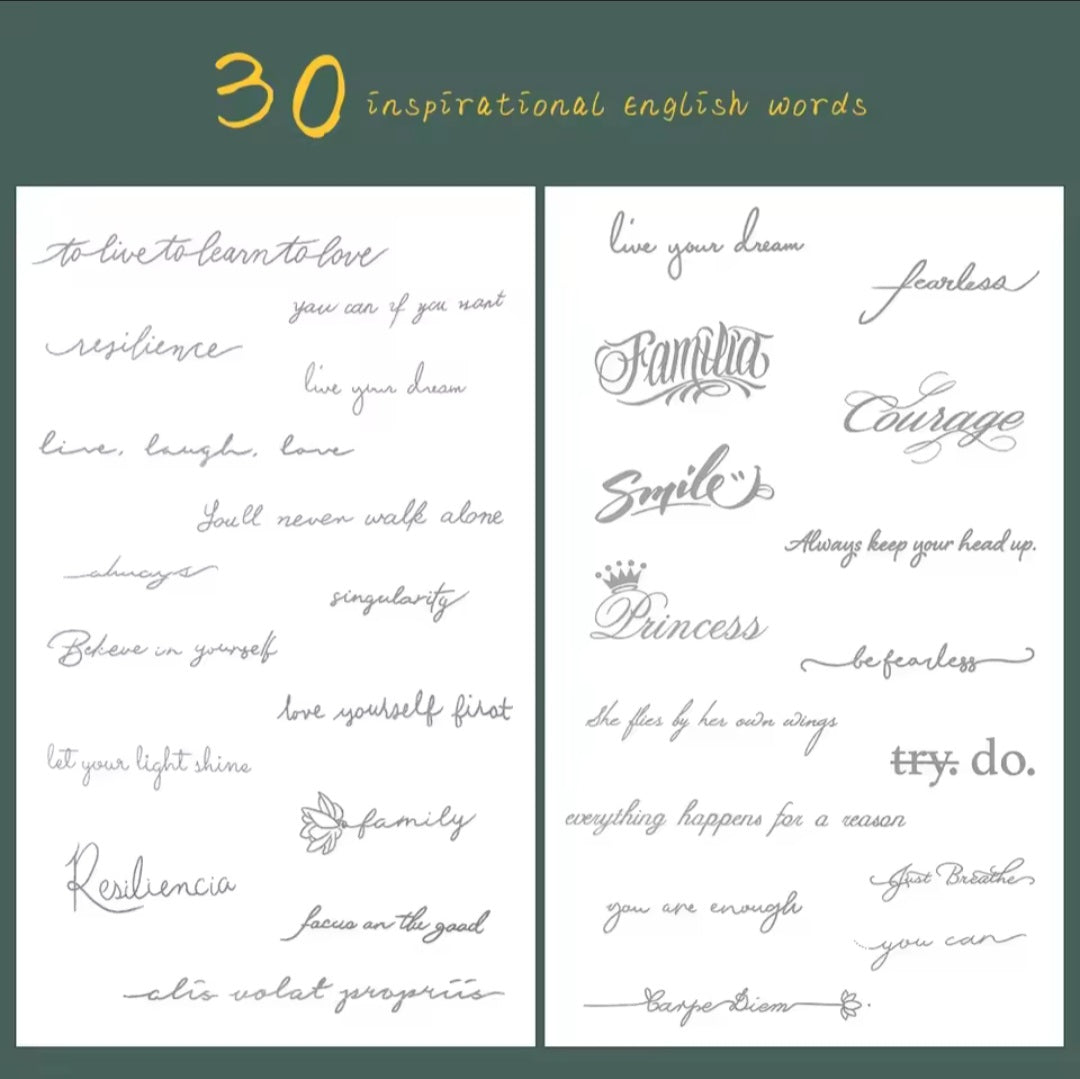 30 inspirational English words
to live to learn to love
you can if you want
resilience
live your dream
live, laugh, love
You'll never walk alone
always
singularity
Believe in yourself
love yourself first
let your light shine
family
Resiliencia
focus on the good
alis volat propriis
live your dream
fearless
Familia
Courage
Smile
Always keep your head up.
Princess
be fearless
She flies by her own wings
try. do.
everything happens for a reason
Just Breathe
you are enough
you can
Carpe Diem